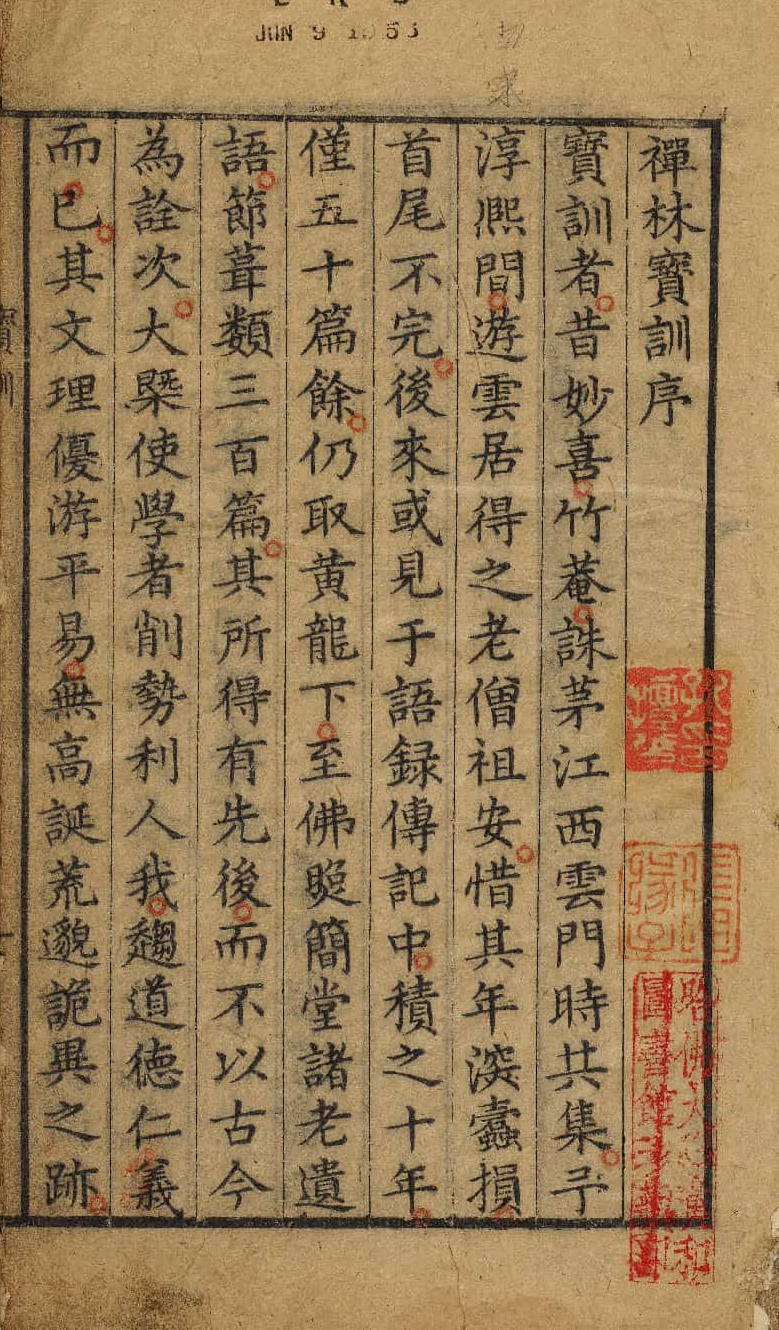 JUN 9 1953
禪林寳訓序
寳訓者昔妙喜竹菴誅茅江西雲門時共集予
淳熈間遊雲居得之老僧祖安惜其年深蠧損
首尾不完後來或見于語録傳記中積之十年
僅五十篇餘仍取黄龍下至佛照簡堂諸老遺
語節葺類三百篇其所得有先後而不以古今
為詮次大槩使學者削勢利人我趨道德仁義
而已其文理優游平易無高誕荒邈詭異之跡
寳訓
哈佛大學漢和
圖書館